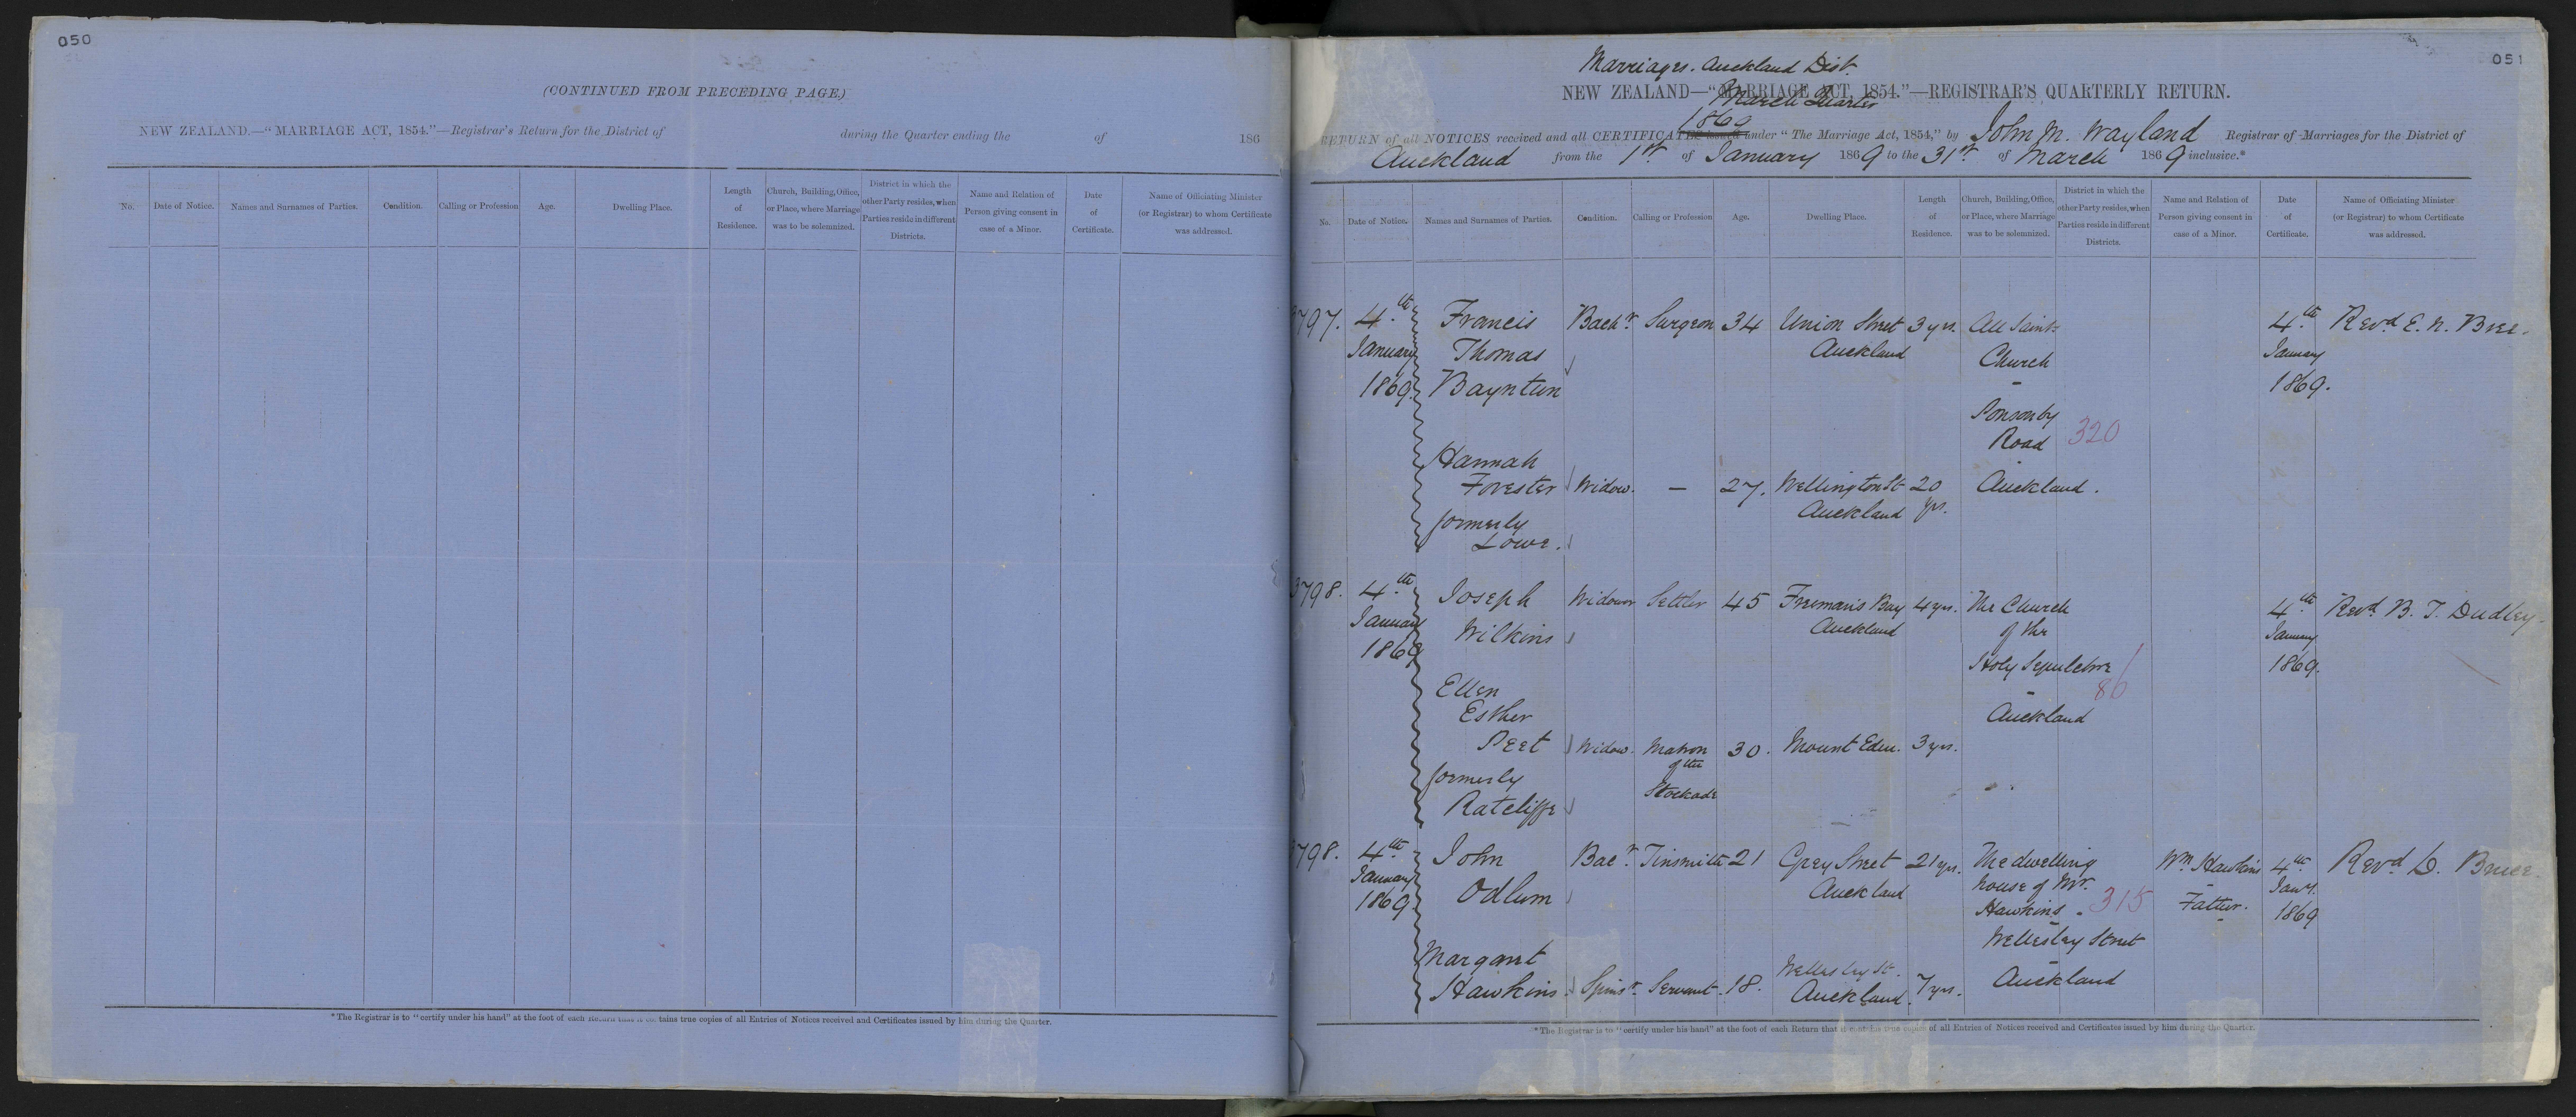 050
(CONTINUED FROM PRECEDING PAGE.)
NEW ZEALAND.—"MARRIAGE ACT, 1854."—Registrar's Return for the District of during the Quarter ending the of 186
No. Date of Notice. Names and Surnames of Parties. Condition. Calling or Profession Age. Dwelling Place. Length of Residence. Church, Building, Office, or Place, where Marriage was to be solemnized. District in which the other Party resides, when Parties reside in different Districts. Name and Relation of Person giving consent in case of a Minor. Date of Certificate. Name of Officiating Minister (or Registrar) to whom Certificate was addressed.
*The Registrar is to "certify under his hand" at the foot of each Return that it contains true copies of all Entries of Notices received and Certificates issued by him during the Quarter.
051
Marriages. Auckland Dist.
NEW ZEALAND—"MARRIAGE ACT, 1854."—REGISTRAR'S QUARTERLY RETURN.
March Quarter
1869
RETURN of all NOTICES received and all CERTIFICATES issued under "The Marriage Act, 1854," by John M. Wayland Registrar of Marriages for the District of
Auckland from the 1st of January 1869 to the 31st of March 1869 inclusive.*
No. Date of Notice. Names and Surnames of Parties. Condition. Calling or Profession Age. Dwelling Place. Length of Residence. Church, Building, Office, or Place, where Marriage was to be solemnized. District in which the other Party resides, when Parties reside in different Districts. Name and Relation of Person giving consent in case of a Minor. Date of Certificate. Name of Officiating Minister (or Registrar) to whom Certificate was addressed.
3797. 4th Francis Bachr. Surgeon 34 Union Street 3 yrs. All Saints 4th Revd. E. N. Bree.
January Thomas Auckland Church January
1869. Bayntun 1869.
Ponsonby
Road 320
Hannah
Forester Widow. — 27. Wellington St 20 Auckland.
formerly Auckland yrs.
Lowe.
3798. 4th Joseph Widower Settler 45 Freeman's Bay 4 yrs. The Church 4th Revd. B. T. Dudley.
January Wilkins Auckland of the January
1869 Holy Sepulchre 1869.
Ellen 86
Esther Auckland
Peet Widow. Matron 30. Mount Eden. 3 yrs.
formerly of the
Ratcliffe Stockade
3798. 4th John Bacr. Tinsmith 21 Grey Street 21 yrs. The dwelling Wm. Hawkins 4th Revd. D. Bruce.
January Odlum Auckland house of Mr. Father. Jany.
1869. Hawkins. 315 1869
Wellesley Street
Margaret Auckland
Hawkins. Spinsr. Servant. 18. Wellesley St. 7 yrs.
Auckland.
*The Registrar is to "certify under his hand" at the foot of each Return that it contains true copies of all Entries of Notices received and Certificates issued by him during the Quarter.